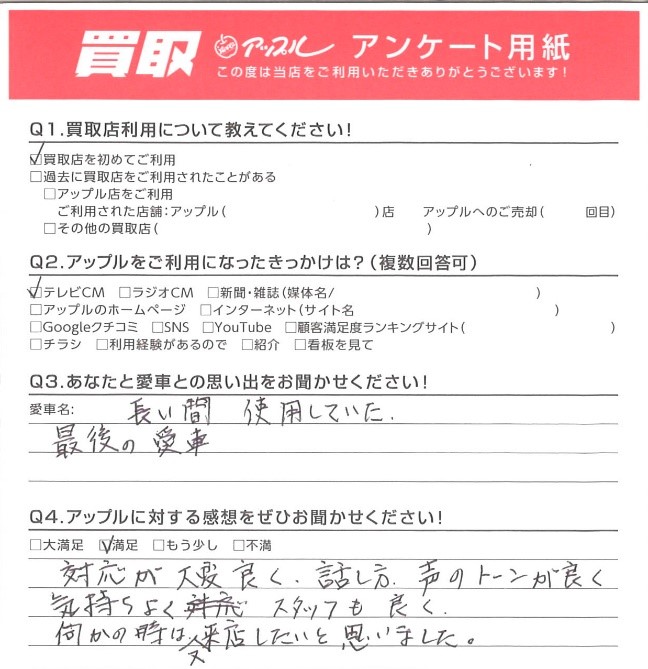 買取 アップル アンケート用紙
この度は当店をご利用いただきありがとうございます！
Q1.買取店利用について教えてください！
☑買取店を初めてご利用
□過去に買取店をご利用されたことがある
□アップル店をご利用
ご利用された店舗：アップル（ ）店 アップルへのご売却（ 回目）
□その他の買取店（ ）
Q2.アップルをご利用になったきっかけは？（複数回答可）
☑テレビCM □ラジオCM □新聞・雑誌（媒体名/ ）
□アップルのホームページ □インターネット（サイト名 ）
□Googleクチコミ □SNS □YouTube □顧客満足度ランキングサイト（ ）
□チラシ □利用経験があるので □紹介 □看板を見て
Q3.あなたと愛車との思い出をお聞かせください！
愛車名： 長い間 使用していた.
最後の愛車
Q4.アップルに対する感想をぜひお聞かせください！
□大満足 ☑満足 □もう少し □不満
対応が大変良く、話し方、声のトーンが良く
気持ちよく対応 スタッフも良く、
何かの時は又来店したいと思いました。